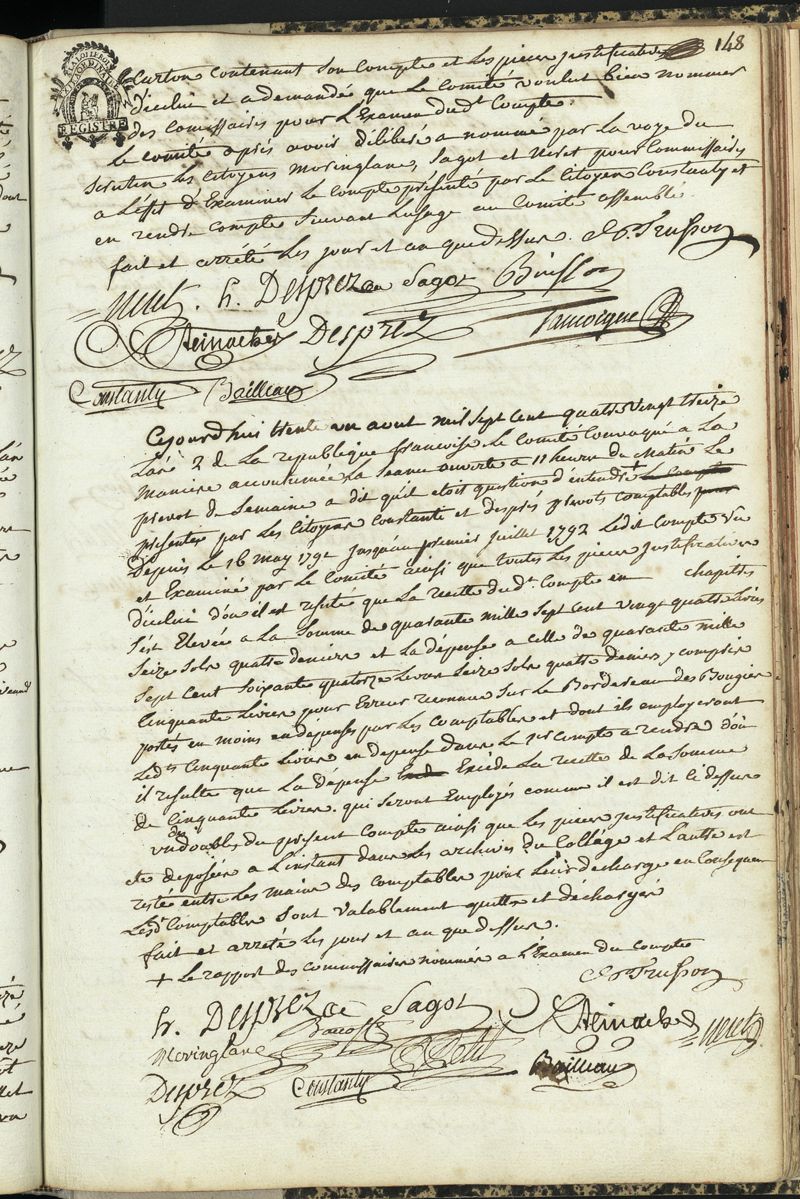 148
LA LOI LE ROI
EXTRAORDINAIRE
REGISTRE
Carton contenant Son Compte et Les pieces justificatives
d'icelui et a demandé que Le Comité voulut bien nommer
des Commissaires pour L'Examen dudt Compte.
Le comité après avoir déliberé a nommé par La voye du
Scrutin Les Citoyens Moringlane, Sagot et Néret pour Commissaires
a L'éfet d'Examiner Le Compte présenté par Le Citoyen Constanty et
en rendre Compte Suivant Lusage au Comité assemblé.
fait et arrété Les jour et an que dessus.
Néret. h. Desprez Sagot Buisson
Steinacher Desprez
Constanty Bailleau
Cejourdhui trente un aout mil Sept Cent quatre vingt treize
L'ané 2 de La republique francoise Le Comité Convoqué a La
Maniere accoutumée La Seance ouverte a 11 heures du Matin Le
prevot de Semaine a dit qu'il étoit question d'entendre + Le Compte
présenté par Les Citoyens Constanti et Després prevots Comptables pour
Depuis Le 16 May 1791 Jusqu'au premier Juillet 1792 Lédit Compte vû
et Examiné par Le Comité ainsi que toutes Les pieces Justificatives
D'icelui d'ou il est resulté que La recette dudt Compte en chapitres
S'est Elevée a La Somme de quarante mille Sept Cent vingt quatre Livres
Seize Sols quatre deniers et La dépense a celle de quarante mille
Sept Cent Soixante quatorze Livres Seize Sols quatre deniers y compris
Cinquante Livres pour Erreur reconnue Sur Le Bordereau des Bougies
portés en moins en dépense par Les Comptables et dont ils employeront
Lesdts Cinquante Livres en depense dans Le 1er Compte a rendre d'ou
il resulte que La dépense Excede La recette de La Somme
de Cinquante Livres. qui Seront Employés comme il est dit Ci dessus
un double du présent Compte ainsi que Les pieces Justificatives ont
ete deposées a L'instant dans Les archives du Collège et L'autre est
restée entre Les mains des Comptables pour Leur decharge en Consequence
Lesdt Comptables Sont valablement quittes et déchargés
fait et arreté Les jour et an que dessus.
+ Le rapport des Commissaires nommés a L'Examen du Compte
h. Desprez Sagot Steinacher Néret
Moringlane Petit
Desprez Constanty Bailleau